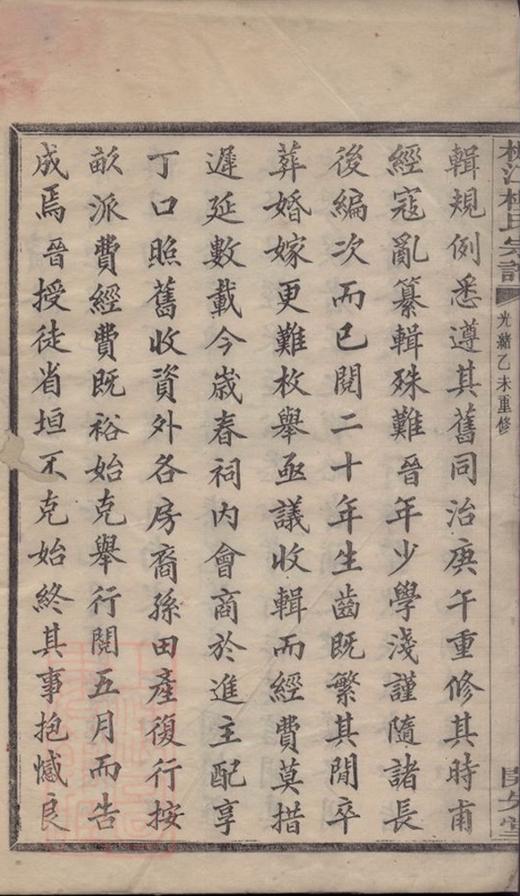 林氏宗譜
光緒乙未重修
輯規例悉遵其舊同治庚午重修其時甫
經寇亂纂輯殊難晉年少學淺謹隨諸長
後編次而已閱二十年生齒既繁其閒卒
葬婚嫁更難枚舉亟議收輯而經費莫措
遲延數載今歲春祠內會商於進主配享
丁口照舊收資外各房裔孫田產復行按
畝派費經費既裕始克舉行閱五月而告
成焉晉授徒省垣不克始終其事抱憾良